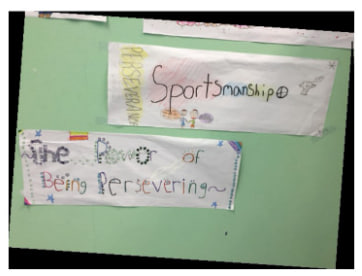 PERSEVERAN
Sportsmanship
The Power of
Being Persevering~